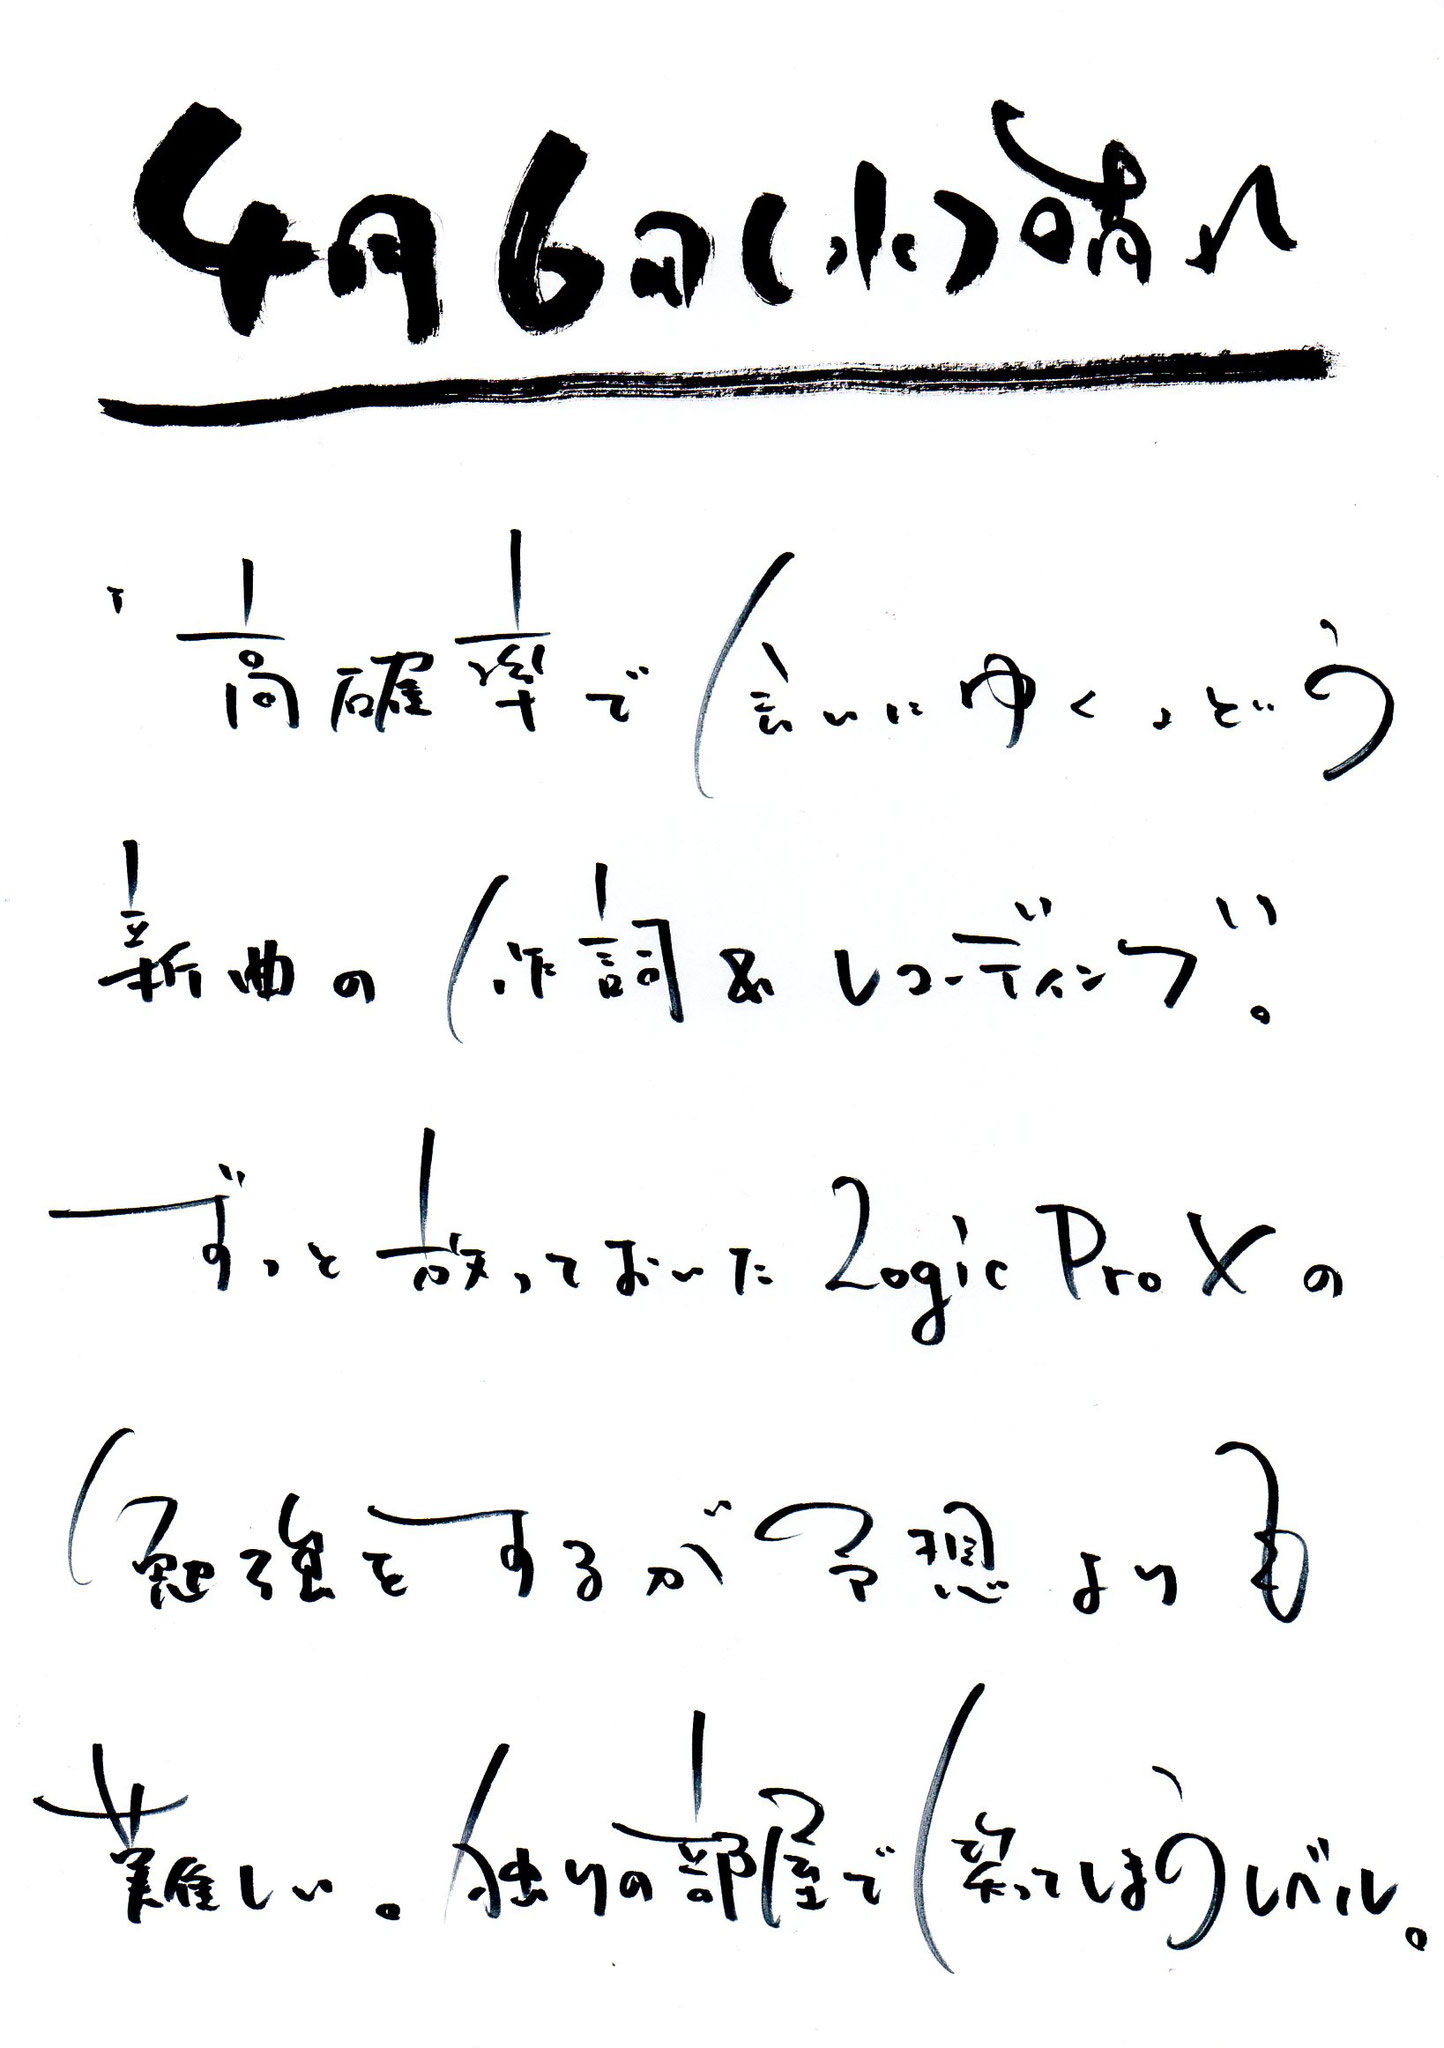 4月6日(水)晴れ
「高確率で会いにゆく」という
新曲の作詞&レコーディング。
ずっと放っておいたLogic Pro Xの
勉強をするが予想よりも
難しい。独りの部屋で笑ってしまうレベル。